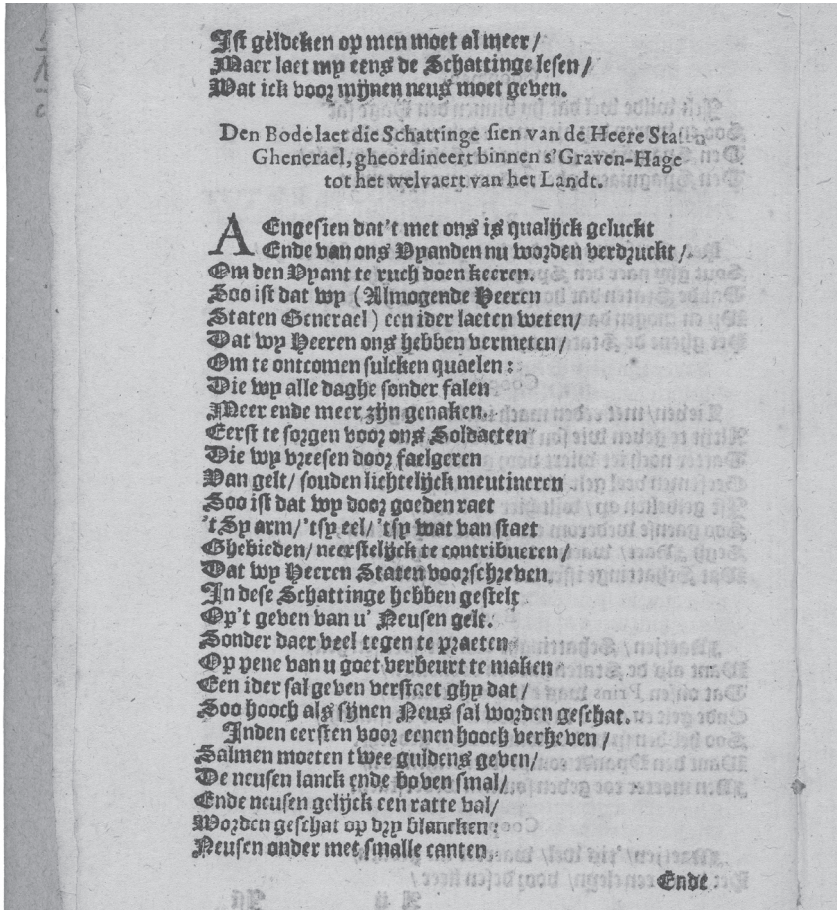 Ist geldeken op men moet al meer/
Maer laet my eens de Schattinge lesen/
Wat ick voor mijnen neus moet geven.
Den Bode laet die Schattinge sien van de Heere Staten
Ghenerael, gheordineert binnen s'Graven-Hage
tot het welvaert van het Landt.
AEngesien dat't met ons is qualijck geluckt
Ende van ons Vyanden nu worden verdruckt/
Om den Vyant te ruch doen keeren.
Soo ist dat wy (Almogende Heeren
Staten Generael) een ider laeten weten/
Dat wy Heeren ons hebben vermeten/
Om te ontcomen sulcken quaelen:
Die wy alle daghe sonder falen
Meer ende meer zijn genaken.
Eerst te sorgen voor ons Soldaeten
Die wy vreesen door faelgeren
Van gelt/ souden lichtelijck meutineren
Soo ist dat wy door goeden raet
'tSy arm/'tsy eel/'tsy wat van staet
Ghebieden/neerstelijck te contribueren/
Dat wy Heeren Staten voorschreven
In dese Schattinge hebben gestelt
Op't geven van u' Neusen gelt.
Sonder daer veel tegen te praeten
Op pene van u goet verbeurt te maken
Een ider sal geven verstaet ghy dat/
Soo hooch als sijnen Neus sal worden geschat.
Inden eersten voor eenen hooch verheven/
Salmen moeten twee guldens geven/
De neusen lanck ende boven smal/
Ende neusen gelijck een ratte val/
Worden geschat op dry blancken:
Neusen onder met smalle canten,
Ende